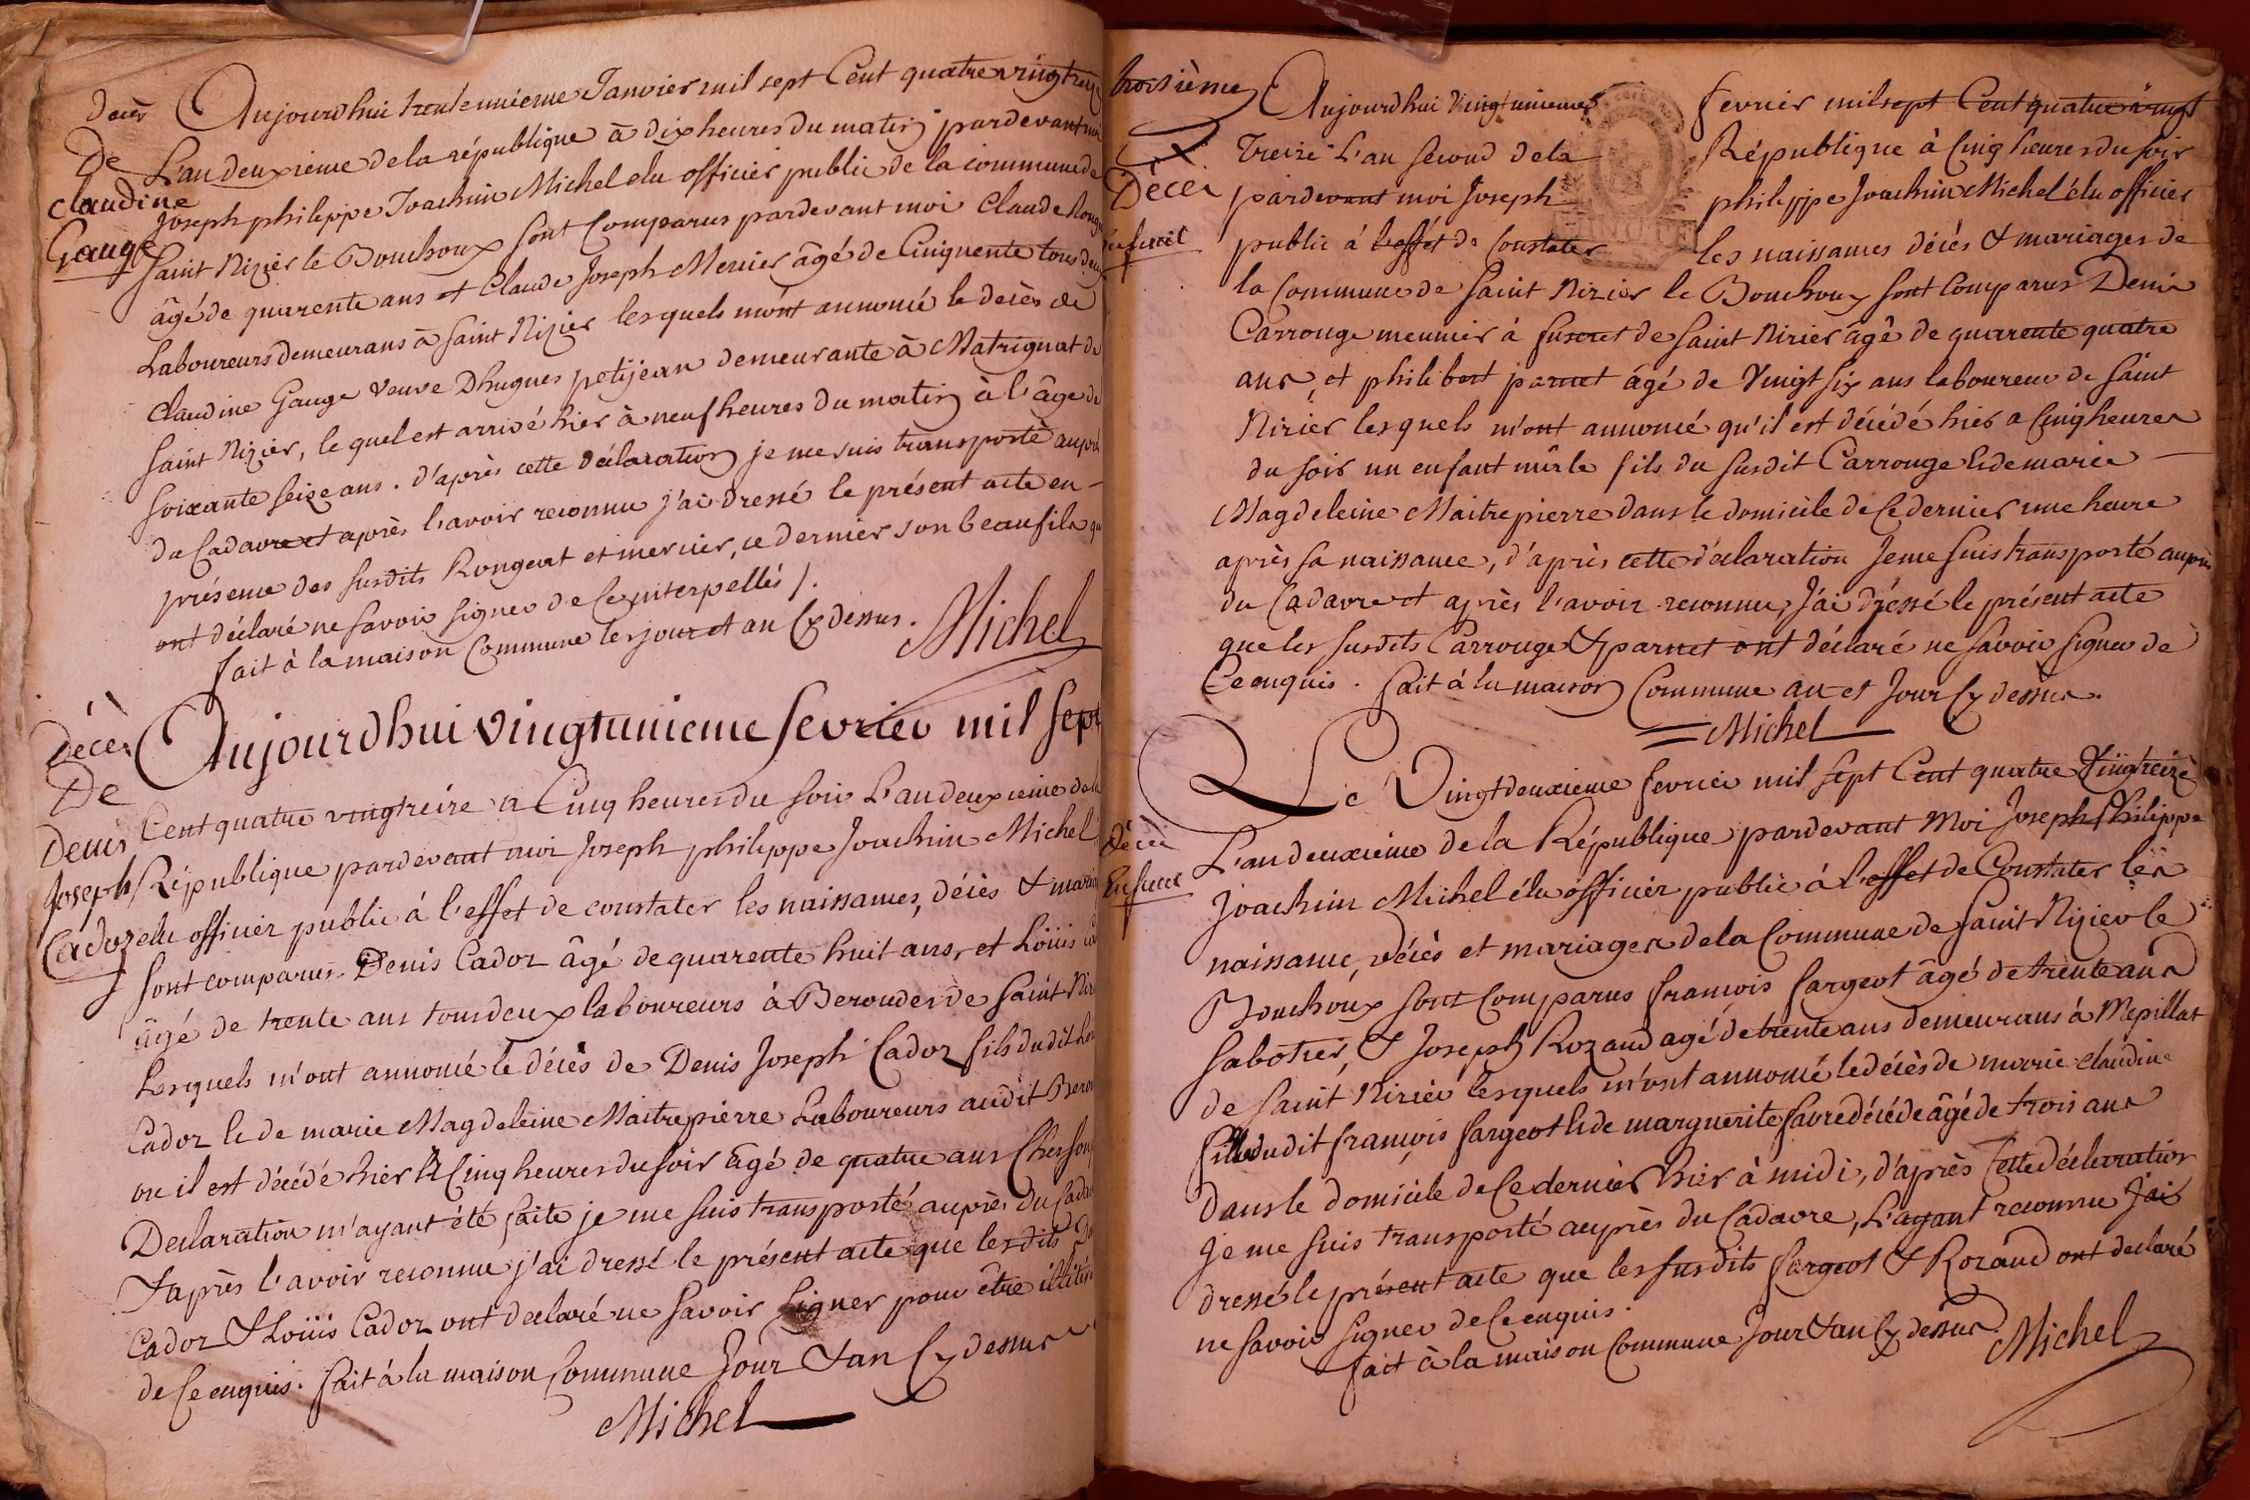 Décès
De
Claudine
Gauge
Aujourdhui trente unieme Janvier mil sept Cent quatre vingt treize
L'an deuxieme de la république à dix heures du matin pardevant moi
Joseph philippe Joachim Michel elu officier public de la commune de
Saint Nizier le Bouchoux sont Comparus pardevant moi Claude
âgé de quarente ans et Claude Joseph Mercier âgé de Cinquente tous deux
Laboureurs demeurans à Saint Nizier lesquels m'ont annoncé le décès de
Claudine Gauge veuve Dhugues petijean demeurante à Matrignat de
Saint Nizier, le quel est arrivé hier à neuf heures du matin à l'âge de
soixante seize ans. d'après cette déclaration je me suis transporté auprès
du Cadavre et après l'avoir reconnu j'ai dressé le présent acte en
présence des susdits Rongeat et mercier, ce dernier son beaufils qui
ont déclaré ne savoir signer de ce interpellés /.
fait à la maison Commune les jour et an Cy dessus.
Michel
Décès
De
Denis
Joseph
Cadoz
Aujourdhui vingtunieme fevrier mil sept
Cent quatre vingt treize à Cinq heures du soir L'an deuxieme de la
République pardevant moi Joseph philippe Joachim Michel
elu officier public à l'effet de constater les naissances, décès & mariages
sont comparus Denis Cadoz âgé de quarente huit ans, et Loüis
âgé de trente ans tous deux laboureurs à Berouder de Saint
Lesquels m'ont annoncé le décès de Denis Joseph Cadoz fils dudit
Cadoz & de marie Magdeleine Maitrepierre Laboureurs audit
ou il est décédé hier à Cinq heures du soir âgé de quatre ans
Declaration m'ayant été faite je me suis transporté auprès du Cadavre
& après l'avoir reconnu j'ai dressé le présent acte que lesdits
Cadoz & Loüis Cadoz ont declaré ne savoir signer pour être
de ce enquis. fait à la maison Commune Jour & an Cy dessus
Michel
troisième
Décès
Aujourdhui vingt unieme fevrier mil sept Cent quatre vingt
Treize L'an second de la République à Cinq heures du soir
pardevant moi Joseph philippe Joachim Michel élu officier
public à l'effet de Constater les naissances décès & mariages de
la Commune de Saint Nizier le Bouchoux sont Comparus Denis
Carrouge meunier à de Saint Nizier âgé de quarente quatre
ans, et philibert parnet âgé de Vingt six ans laboureur de Saint
Nizier lesquels m'ont annoncé qu'il est décédé hier à Cinq heures
du soir un enfant mâle fils du susdit Carrouge & de marie
Magdeleine Maitrepierre dans le domicile de ce dernier une heure
après sa naissance, d'après cette déclaration Je me suis transporté auprès
du Cadavre et après l'avoir reconnu, J'ai dressé le présent acte
que les susdits Carrouge & parnet ont déclaré ne savoir signer de
Ce enquis. fait à la maison Commune an et Jour Cy dessus.
Michel
Décès
Le Vingtdeuxieme fevrier mil sept Cent quatre Vingtreize
L'an deuxieme de la République pardevant Moi Joseph Philippe
Joachim Michel élu officier public à l'effet de Constater les
naissance, décès et mariages de la Commune de Saint Nizier le
Bouchoux sont Comparus francois fargeot âgé de trente ans
Sabotier, & Joseph Rozand agé de trente ans demeurans à Mepillat
de Saint Nizier lesquels m'ont annoncé le décès de marie claudine
fille dudit francois fargeot & de marguerite favre décédé âgé de trois ans
dans le domicile de Ce dernier hier à midi, d'après Cette déclaration
Je me suis transporté auprès du Cadavre, L'ayant reconnu J'ai
dressé le présent acte que les susdits fargeot & Rozand ont declaré
ne savoir signer de Ce enquis.
fait à la maison Commune Jour & an Cy dessus
Michel